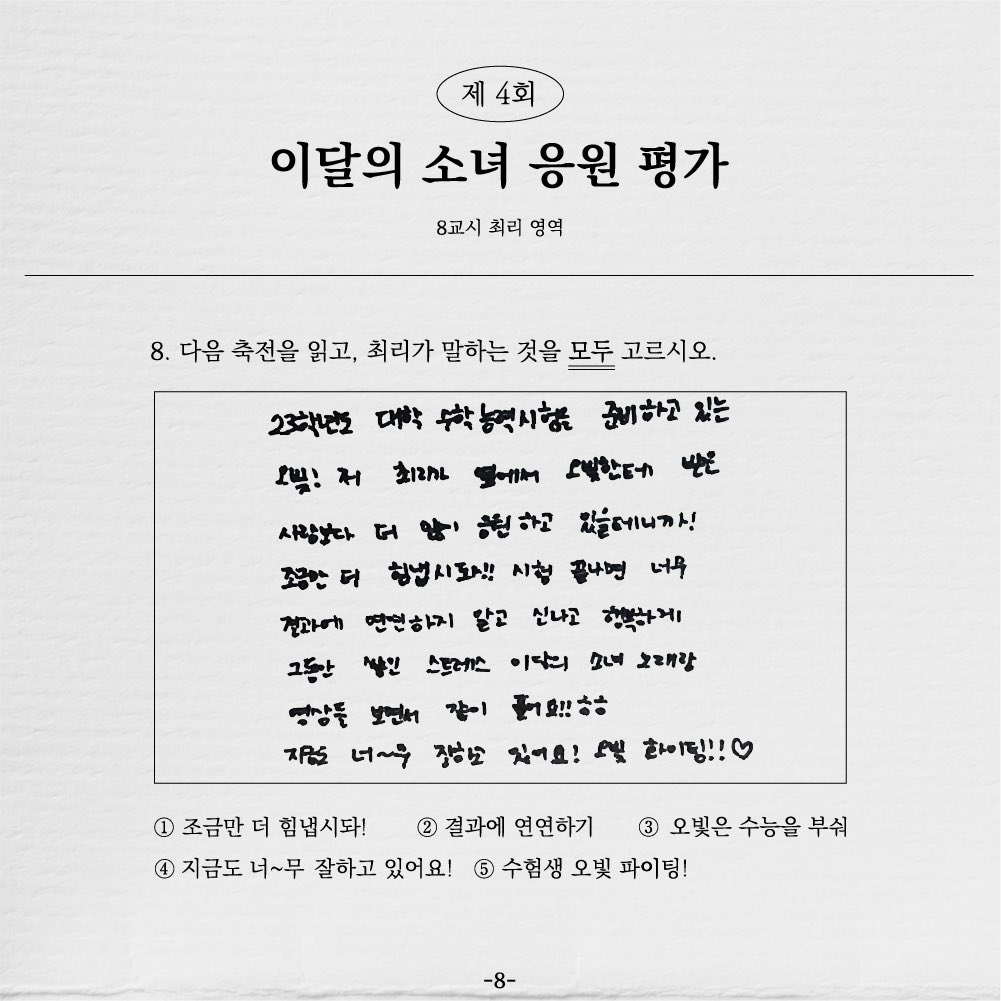 제 4회
이달의 소녀 응원 평가
8교시 최리 영역
8. 다음 축전을 읽고, 최리가 말하는 것을 모두 고르시오.
23학년도 대학 수학능력시험을 준비하고 있는
오빛! 저 최리가 옆에서 오빛한테 받은
사랑보다 더 많이 응원하고 있을테니까!
조금만 더 힘냅시돠!! 시험 끝나면 너무
결과에 연연하지 말고 신나고 행복하게
그동안 쌓인 스트레스 이달의 소녀 노래랑
영상들 보면서 같이 풀어요!! ㅎㅎ
지금도 너~무 잘하고 있어요! 오빛 화이팅!!♡
① 조금만 더 힘냅시돠! ② 결과에 연연하기 ③ 오빛은 수능을 부숴
④ 지금도 너~무 잘하고 있어요! ⑤ 수험생 오빛 파이팅!
-8-